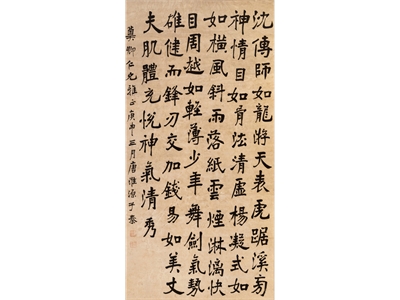 沈傳師如龍游天表虎踞溪旁
神情自如骨法清虛楊凝式如
如橫風斜雨落紙雲煙淋漓快
目周越如輕薄少年舞劍氣勢
雄健而鋒刃交加錢易如美丈
夫肌體充悅神氣清秀
仁兄雅正庚申三月唐